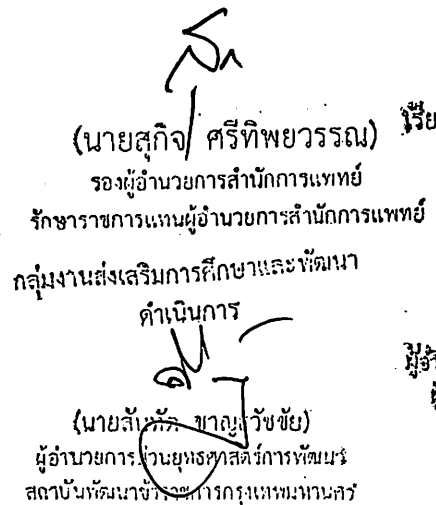 (นายสุกิจ ศรีทิพยวรรณ)
รองผู้อำนวยการสำนักการแพทย์
รักษาราชการแทนผู้อำนวยการสำนักการแพทย์
กลุ่มงานส่งเสริมการศึกษาและพัฒนา
ดำเนินการ
(นายสันทัด
ผู้อำนวยการส่วนยุทธศาสตร์การพัฒนา
สถาบันพัฒนาข้าราชการกรุงเทพมหานคร